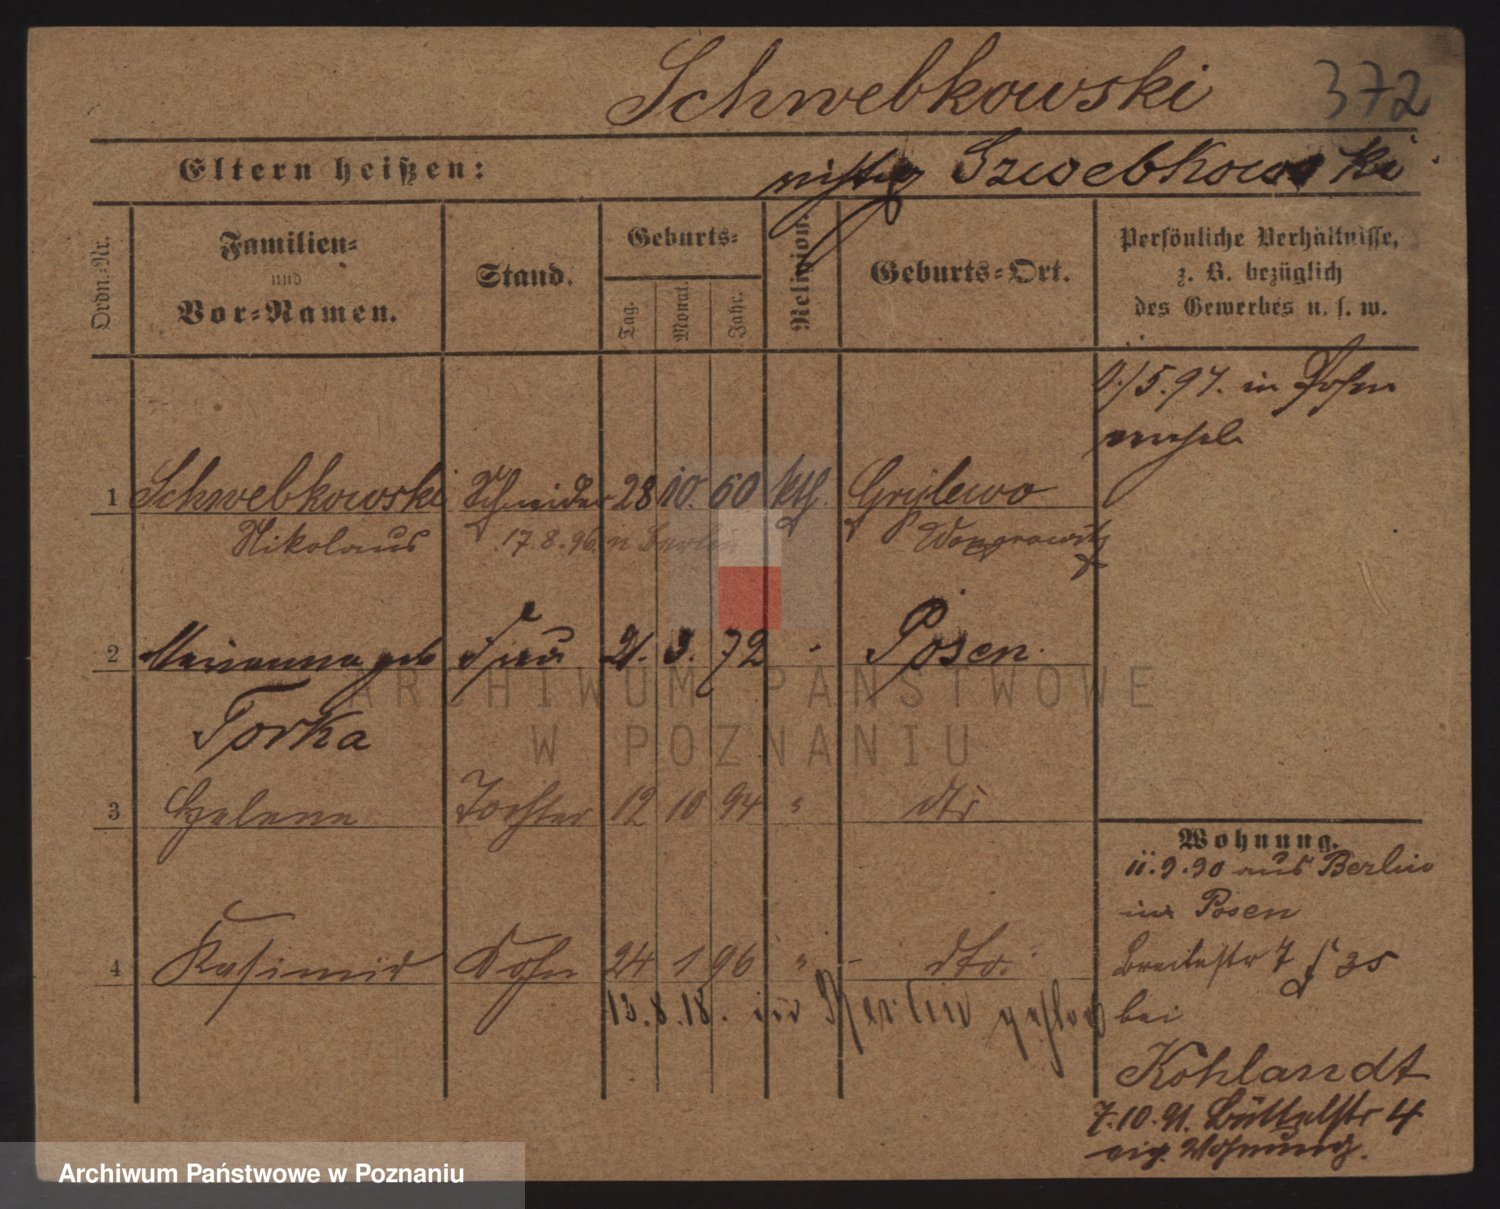 Schwebkowski
372
Eltern heißen:
richtig Szwebkowski
Ordn.-Nr.
Familien-
und
Vor-Namen.
Stand.
Geburts-
Tag.
Monat.
Jahr.
Religion.
Geburts-Ort.
Persönliche Verhältnisse,
z. B. bezüglich
des Gewerbes u. s. w.
5.97. in Posen
1 Schwebkowski Schneider 28 10. 60 kth. Grylewo
Nikolaus 17.8.96 in Berlin Wongrowitz
2 Marianna geb Frau 21. 3. 72 " Posen.
Torka
3 Helena Tochter 12 10 94 " dto
4 Kasimir Sohn 24 1 96 " dto.
13.8.18. in Berlin
Wohnung.
11.9.90 aus Berlin
in Posen
Breitestr 7 35
bei
Kohlandt
7.10.91. Büttelstr 4
eig. Wohnung.
ARCHIWUM PAŃSTWOWE
W POZNANIU
Archiwum Państwowe w Poznaniu